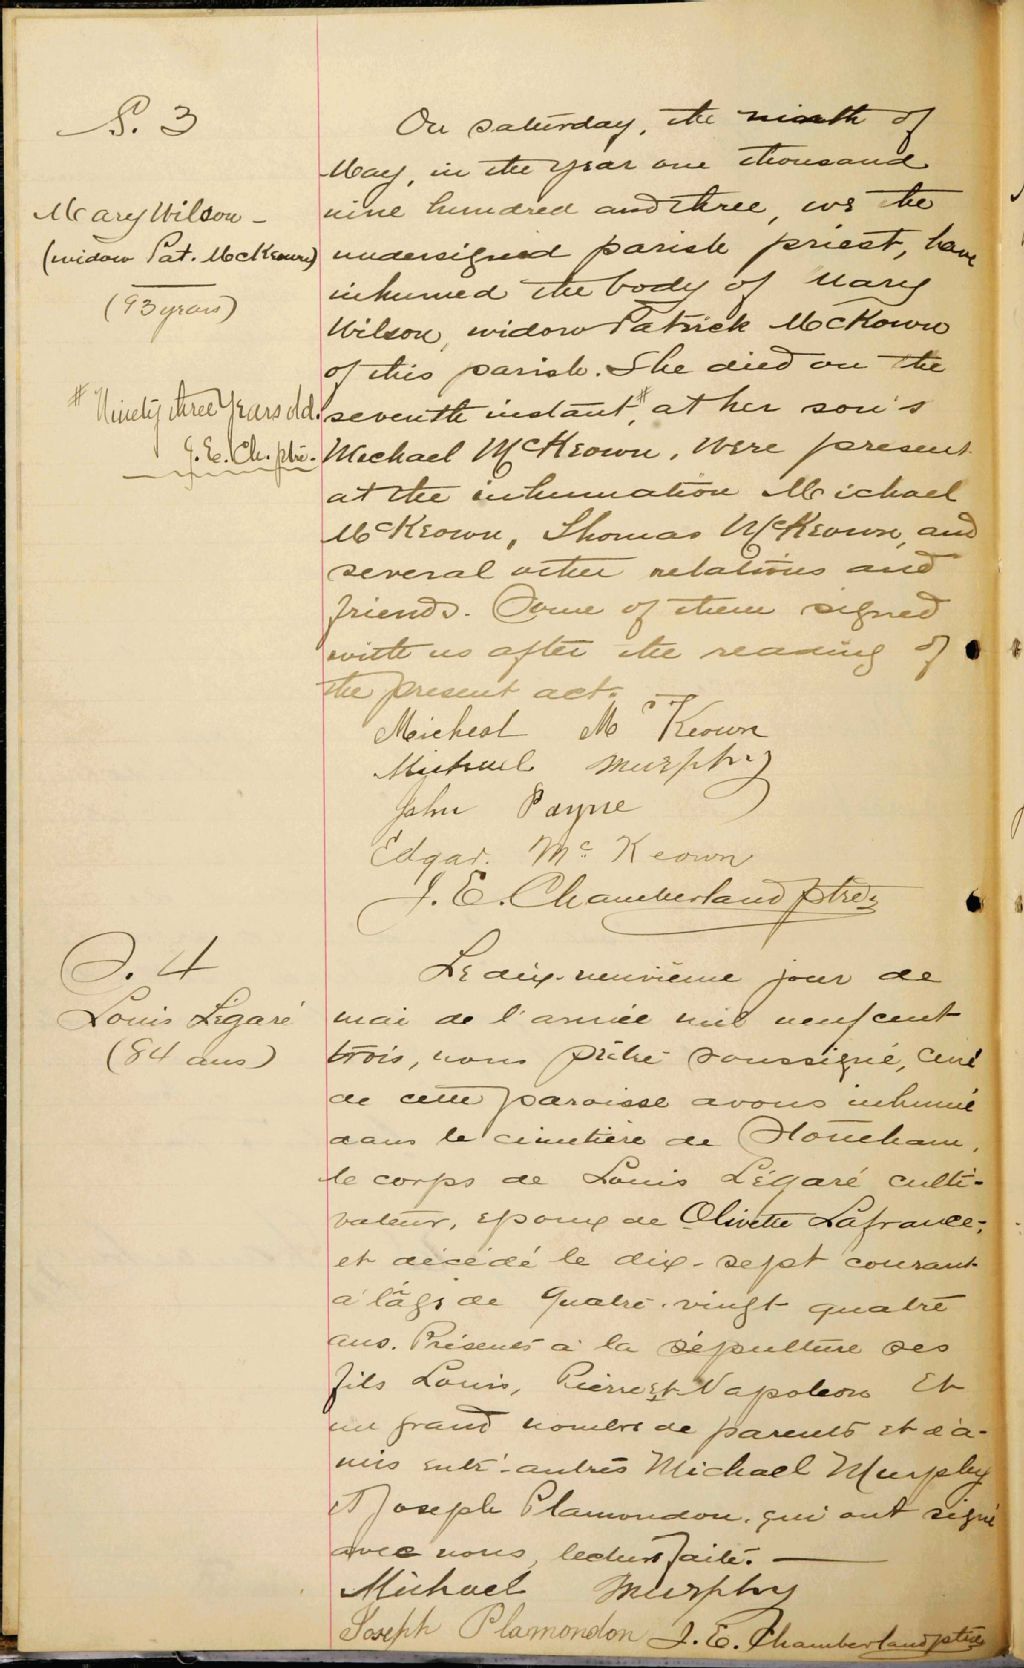 S. 3
Mary Wilson -
(widow Pat. McKeown)
(93 years)
# Ninety three Years old.
J. E. Ch. ptre.
On saturday, the ninth of
May, in the year one thousand
nine hundred and three, we the
undersigned parish priest, have
inhumed the body of Mary
Wilson, widow Patrick McKown
of this parish. She died on the
seventh instant,# at her son's
Michael McKeown. Were present
at the inhumation Michael
McKeown, Thomas McKeown, and
several other relations and
friends. Some of them signed
with us after the reading of
the present act.
Micheal McKeown
Michael Murphy
John Payne
Edgar. Mc Keown
J. E. Chamberland ptre.
S. 4
Louis Légaré
(84 ans)
Le dix-neuvième jour de
mai de l'année mil neuf cent
trois, nous prêtre soussigné, curé
de cette paroisse avons inhumé
dans le cimetière de Stoneham,
le corps de Louis Légaré culti-
vateur, epoux de Olivette Lafrance,
et décédé le dix-sept courant
à l'âge de quatre-vingt quatre
ans. Présents à la sépulture ses
fils Louis, Pierre et Napoleon et
un grand nombre de parents et d'a-
mis entr'autres Michael Murphy
et Joseph Plamondon. qui ont signé
avec nous, lecture faite.
Michael Murphy
Joseph Plamondon J. E. Chamberland ptre